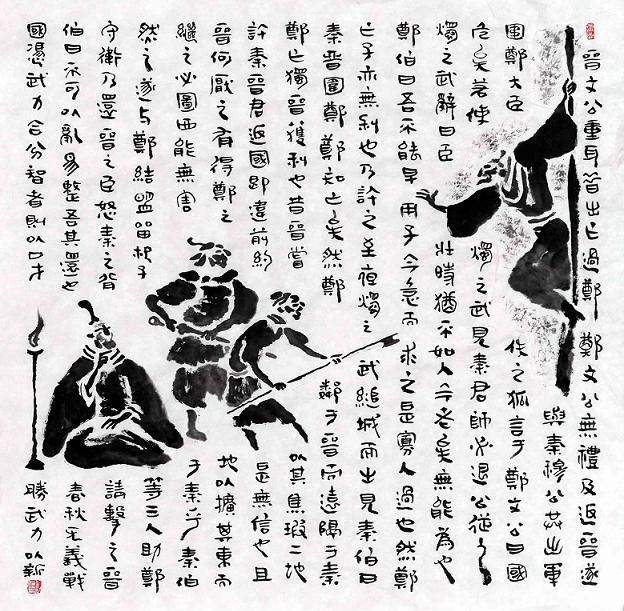 晋文公重耳曾出亡過鄭鄭文公無禮及返晋遂
與秦穆公共出軍
圍鄭大臣佚之狐言于鄭文公曰國
危矣若使燭之武見秦君師必退公從之
燭之武辭曰臣壯時猶不如人今老矣無能為也
鄭伯曰吾不能早用子今急而求之是寡人過也然鄭
亡子亦無利也乃許之至夜燭之武縋城而出見秦伯曰
秦晋圍鄭鄭知亡矣然鄭鄰于晋而遠隔于秦
鄭亡獨晋獲利也昔晋嘗以其焦瑕二地
許秦晋君返國即違前約是無信也且
晋何厭之有得鄭之地以擴其東而
繼之必圖西能無害于秦乎秦伯
然之遂与鄭結盟留杞子等三人助鄭
守衛乃還晋之臣怒秦之背請擊之晋
伯曰不可以亂易整吾其還也春秋无義戰
國憑武力合分智者則以口才勝武力以新